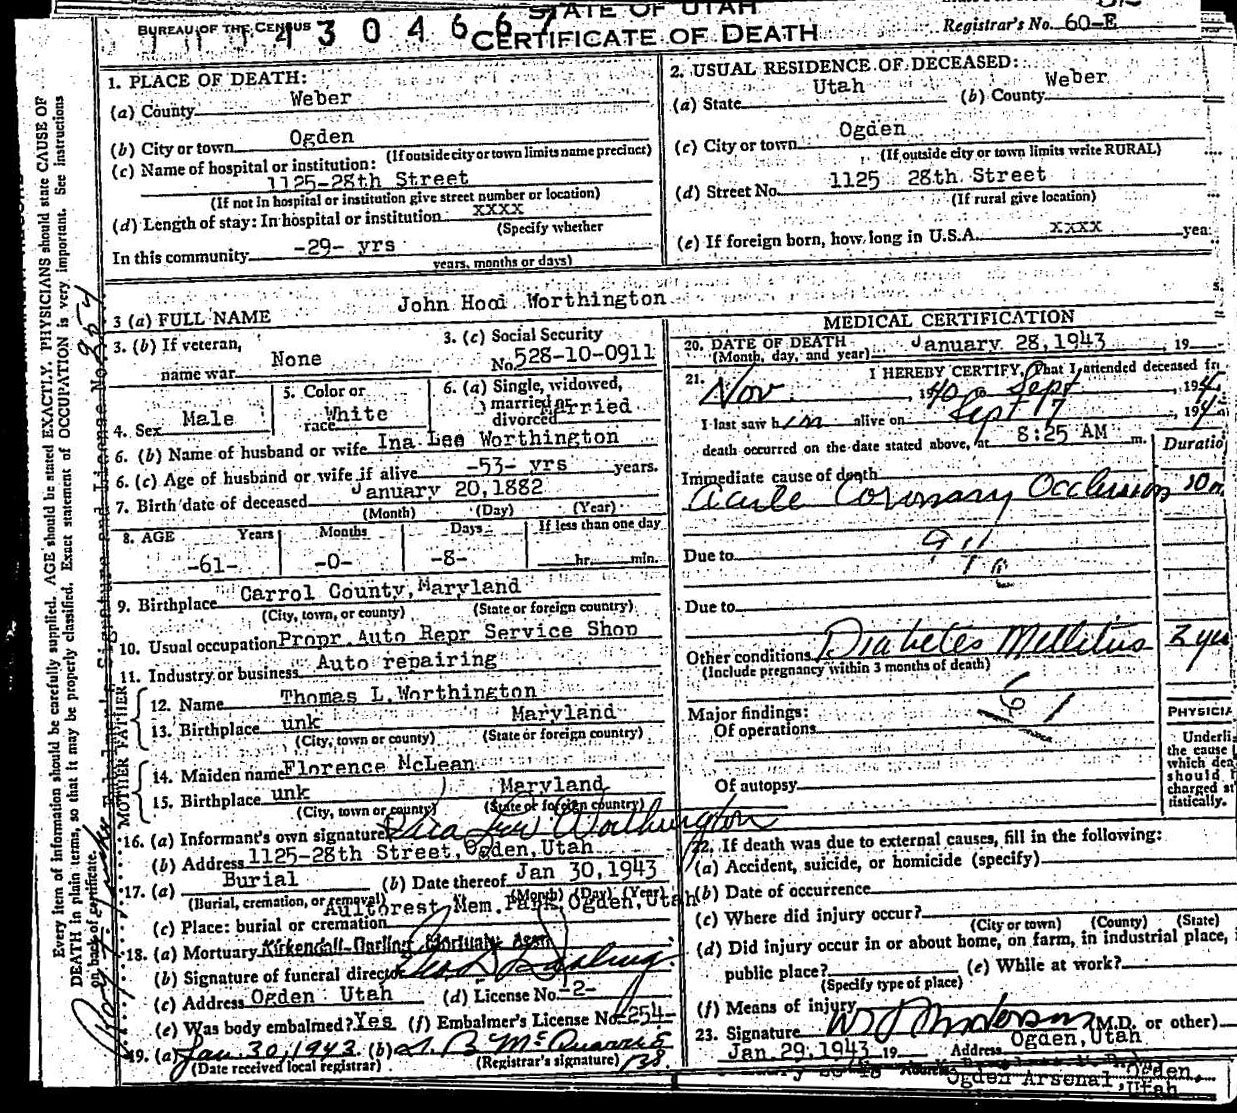 STATE OF UTAH
BUREAU OF THE CENSUS
430466
CERTIFICATE OF DEATH
Registrar's No. 60-E
1. PLACE OF DEATH:
(a) County Weber
(b) City or town Ogden
(If outside city or town limits name precinct)
(c) Name of hospital or institution:
1125-28th Street
(If not in hospital or institution give street number or location)
(d) Length of stay: In hospital or institution xxxx
(Specify whether
In this community -29- yrs
years, months or days)
2. USUAL RESIDENCE OF DECEASED:
(a) State Utah (b) County Weber
(c) City or town Ogden
(If outside city or town limits write RURAL)
(d) Street No. 1125 28th Street
(If rural give location)
(e) If foreign born, how long in U.S.A. xxxx yea
3 (a) FULL NAME John Hood Worthington
3. (b) If veteran, name war None
3. (c) Social Security No. 528-10-0911
4. Sex Male
5. Color or race White
6. (a) Single, widowed, married or divorced Married
6. (b) Name of husband or wife Ina Lee Worthington
6. (c) Age of husband or wife if alive -53- yrs years.
7. Birth date of deceased January 20, 1882
(Month) (Day) (Year)
8. AGE Years Months Days If less than one day
-61- -0- -8- hr. min.
9. Birthplace Carrol County, Maryland
(City, town, or county) (State or foreign country)
10. Usual occupation Propr. Auto Repr Service Shop
11. Industry or business Auto repairing
FATHER
12. Name Thomas L. Worthington
13. Birthplace unk Maryland
(City, town or county) (State or foreign country)
MOTHER
14. Maiden name Florence McLean
15. Birthplace unk Maryland
(City, town or county) (State or foreign country)
16. (a) Informant's own signature Worthington
(b) Address 1125-28th Street, Ogden, Utah
17. (a) Burial (b) Date thereof Jan 30, 1943
(Burial, cremation, or removal) (Month) (Day) (Year)
(c) Place: burial or cremation Aultorest Mem. Park, Ogden, Utah
18. (a) Mortuary Kirkendall-Darling Mortuary
(b) Signature of funeral director
(c) Address Ogden Utah (d) License No. -2-
(e) Was body embalmed? Yes (f) Embalmer's License No. 254-
19. (a) Jan. 30, 1943 (b) McQuarrie
(Date received local registrar) (Registrar's signature)
MEDICAL CERTIFICATION
20. DATE OF DEATH
(Month, day, and year) January 28, 1943, 19
21. I HEREBY CERTIFY, That I attended deceased fr
Nov, 1940 Sept, 194
I last saw him alive on Sept 17, 194
death occurred on the date stated above, at 8:25 AM m.
Duratio
Immediate cause of death
Acute Coronary Occlusion 10 m
Due to
94
Due to
Other conditions Diabetes Mellitus 2 yrs
(Include pregnancy within 3 months of death)
61
Major findings:
Of operations
Of autopsy
PHYSICIA
Underli
the cause
which dea
should
charged st
tistically.
22. If death was due to external causes, fill in the following:
(a) Accident, suicide, or homicide (specify)
(b) Date of occurrence
(c) Where did injury occur?
(City or town) (County) (State)
(d) Did injury occur in or about home, on farm, in industrial place, i
public place? (e) While at work?
(Specify type of place)
(f) Means of injury
23. Signature Anderson (M.D. or other)
Jan. 29, 1943 19 Address Ogden, Utah
Ogden Arsenal, Ogden, Utah
Every item of information should be carefully supplied. AGE should be stated EXACTLY. PHYSICIANS should state CAUSE OF
DEATH in plain terms, so that it may be properly classified. Exact statement of OCCUPATION is very important. See instructions
on back of certificate.